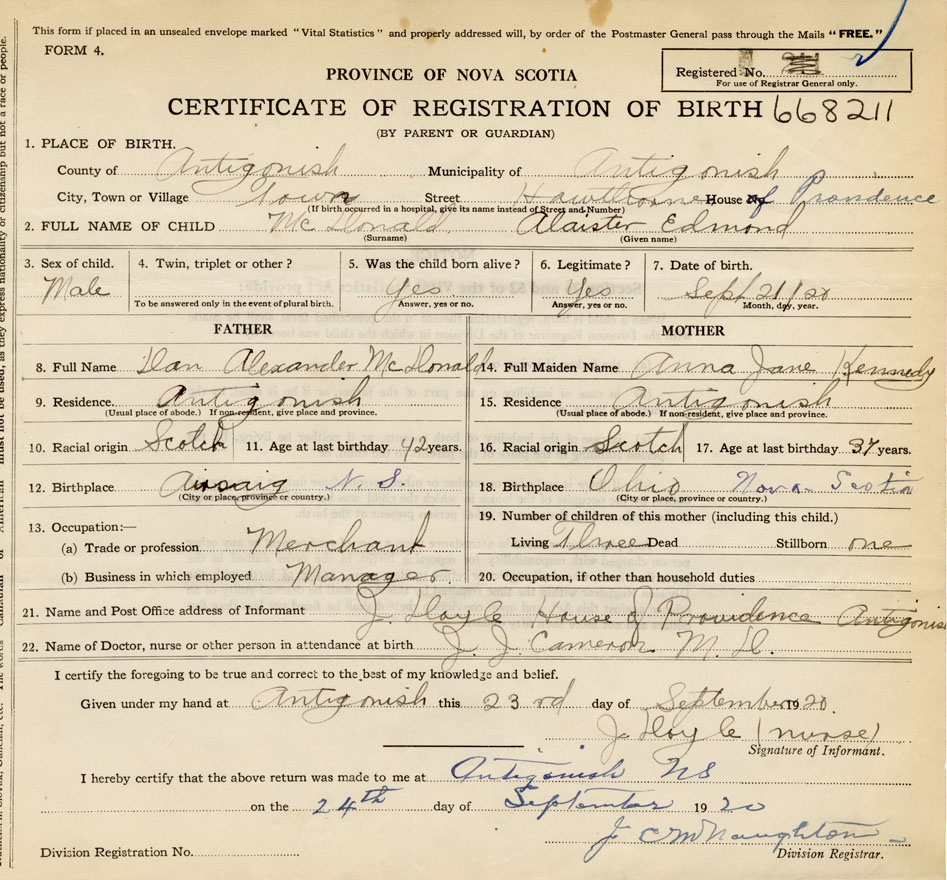 This form if placed in an unsealed envelope marked "Vital Statistics" and properly addressed will, by order of the Postmaster General pass through the Mails "FREE."
FORM 4.
PROVINCE OF NOVA SCOTIA
Registered No.
For use of Registrar General only.
CERTIFICATE OF REGISTRATION OF BIRTH 668211
(BY PARENT OR GUARDIAN)
1. PLACE OF BIRTH.
County of Antigonish Municipality of Antigonish
City, Town or Village Town Street Hawthorne House of Providence
(If birth occurred in a hospital, give its name instead of Street and Number)
2. FULL NAME OF CHILD McDonald Alaister Edmond
(Surname) (Given name)
3. Sex of child. 4. Twin, triplet or other? 5. Was the child born alive? 6. Legitimate? 7. Date of birth.
Male Yes Yes Sept 21/20
To be answered only in the event of plural birth. Answer, yes or no. Answer, yes or no. Month, day, year.
FATHER MOTHER
8. Full Name Dan Alexander McDonald 14. Full Maiden Name Anna Jane Kennedy
9. Residence. Antigonish 15. Residence Antigonish
(Usual place of abode.) If non-resident, give place and province. (Usual place of abode.) If non-resident, give place and province.
10. Racial origin Scotch 11. Age at last birthday 42 years. 16. Racial origin Scotch 17. Age at last birthday 37 years.
12. Birthplace Airsaig N. S. 18. Birthplace Ohio Nova Scotia
(City or place, province or country.) (City or place, province or country.)
13. Occupation:— 19. Number of children of this mother (including this child.)
(a) Trade or profession Merchant Living Three Dead Stillborn one
(b) Business in which employed Manager 20. Occupation, if other than household duties
21. Name and Post Office address of Informant J. Hoyle House of Providence Antigonish
22. Name of Doctor, nurse or other person in attendance at birth J. J. Cameron M. D.
I certify the foregoing to be true and correct to the best of my knowledge and belief.
Given under my hand at Antigonish this 23rd day of September 1920.
J. Hoyle (nurse)
Signature of Informant.
I hereby certify that the above return was made to me at Antigonish NS
on the 24th day of September 1920
J C McNaughton
Division Registrar.
Division Registration No.